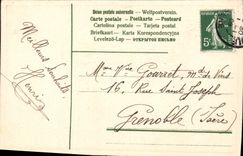 Union postale universelle — Weltpostverein.
Carte postale — Postkarte — Postcard
Cartolina postale — Tarjeta postal
Briefkaart — Karta Korespondencyjna
Levelező-Lap — ОТКРЫТОЕ ПИСЬМО
Meilleurs Souhaits
Henri
Mme Vve Gourret, Md de Vins
16, Rue Saint Joseph
Grenoble
(Isère)
5